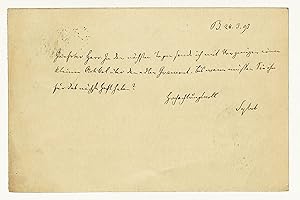 B. 26.3.93
Geehrter Herr! In den nächsten Tagen sende ich mit Vergnügen einen
kleinen Artikel über den edlen Bis wann müßten Sie ihn
für das nächste Heft haben?
Hochachtungsvoll